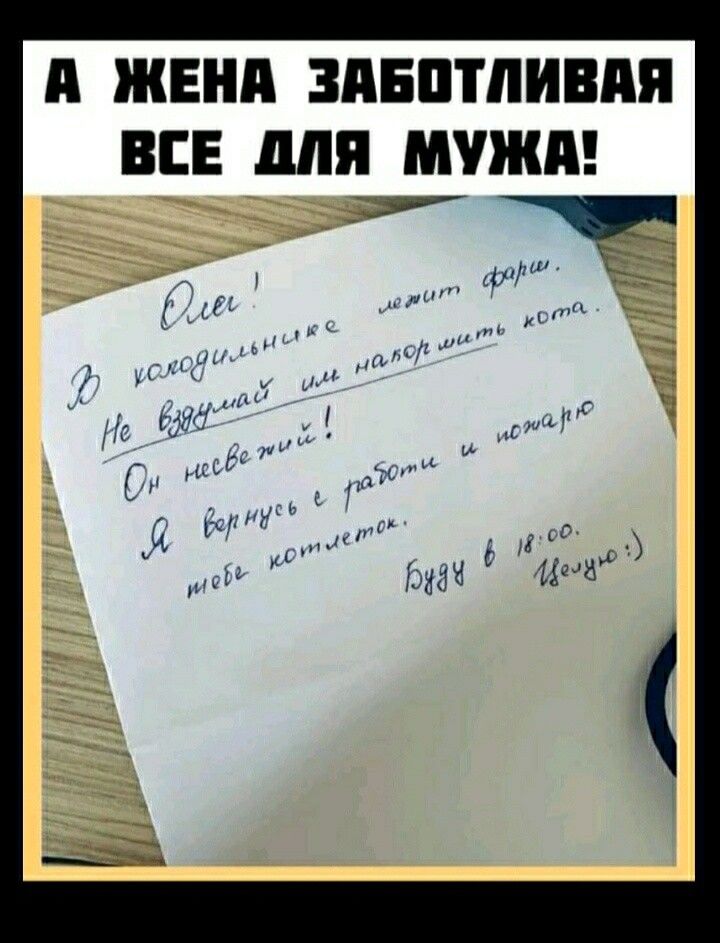 А ЖЕНА ЗАБОТЛИВАЯ
ВСЕ ДЛЯ МУЖА!
Олег!
В холодильнике лежит фарш.
Не вздумай им накормить кота.
Он несвежий!
Я вернусь с работи и пожарю
тебе котлеток.
Буду в 18:00.
Целую :)